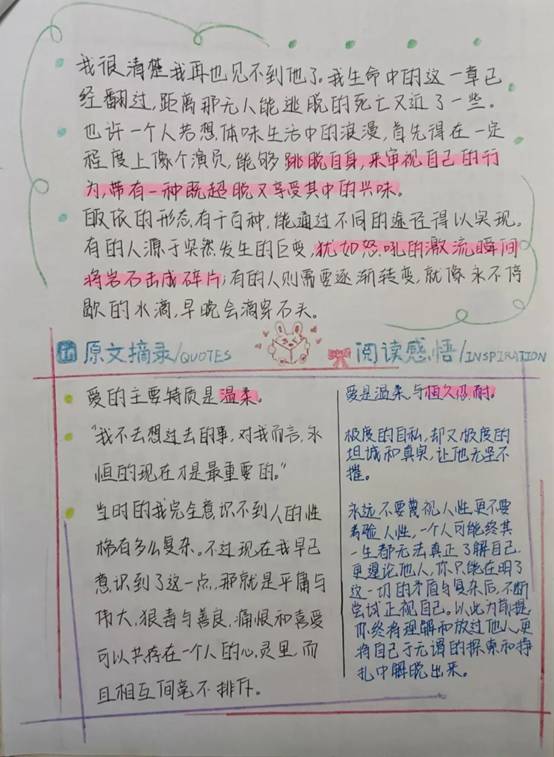 我很清楚我再也见不到他了。我生命中的这一章已
经翻过，距离那无人能逃脱的死亡又近了一些。
也许一个人若想体味生活中的浪漫，首先得在一定
程度上像个演员，能够跳脱自身，来审视自己的行
为，带有一种既超脱又享受其中的兴味。
皈依的形态有千百种，能通过不同的途径得以实现。
有的人源于突然发生的巨变，犹如怒吼的激流瞬间
将岩石击成碎片；有的人则需要逐渐转变，就像永不停
歇的水滴，早晚会滴穿石头。
原文摘录/QUOTES
阅读感悟/INSPIRATION
爱的主要特质是温柔。
“我不去想过去的事，对我而言，永
恒的现在才是最重要的。”
当时的我完全意识不到人的性
格有多么复杂。不过现在我早已
意识到了这一点，那就是平庸与
伟大，狠毒与善良，痛恨和喜爱
可以共存在一个人的心灵里，而
且相互间毫不排斥。
爱是温柔与恒久忍耐。
极度的自私，却又极度的
坦诚和真实，让他无坚不
摧。
永远不要蔑视人性，更不要
考验人性，一个人可能终其
一生都无法真正了解自己，
更遑论他人，你只能在明了
这一切的矛盾与复杂后，不断
尝试正视自己。以此为前提，
你终将理解和放过他人，更
将自己于无谓的探索和挣
扎中解脱出来。